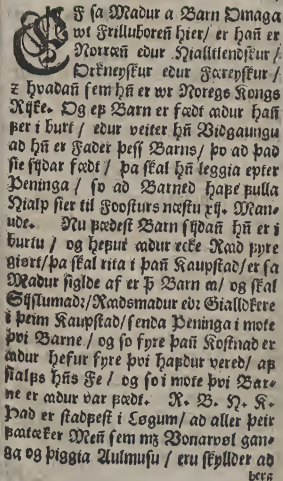 EF sa Madur a Barn Omaga
wt Frilluboren hier/ er hañ er
Norræn edur Hialltlendskur/
Orkneyskur edur Færeyskur/
z hvadañ sem hñ er wr Noregs Kongs
Rijke. Og ef Barn er fædt adur hañ
fer i burt / edur veiter hñ Vidgaungu
ad hñ er Fader þess Barns/ þo ad þad
sie sijdar fædt / þa skal hñ leggia epter
Peninga / so ad Barned hafe fulla
Hialp sier til Foosturs næstu xij. Man-
ude. Nu fædest Barn sijdañ hñ er i
burtu / og hefur adur ecke Raad fyre
giørt/ þa skal rita i þañ Kaupstad/ er sa
Madur siglde af er þ Barn a/ og skal
Sijslumadr/ Raadsmadur edr Gialldkere
i þeim Kaupstad/ senda Peninga i mote
þvi Barne/ og so fyre þañ Kostnad er
adur hefur fyre þvi hafdur vered/ af
sialfs hñs Fe / og so i mote þvi Bar-
ne er adur var fædt. R. B. H. K.
Þad er stadfest i Løgum/ ad aller þeir
Fatæker Meñ sem mz Vonarvøl gan-
ga og þiggia Aulmusu / eru skyllder ad
bera